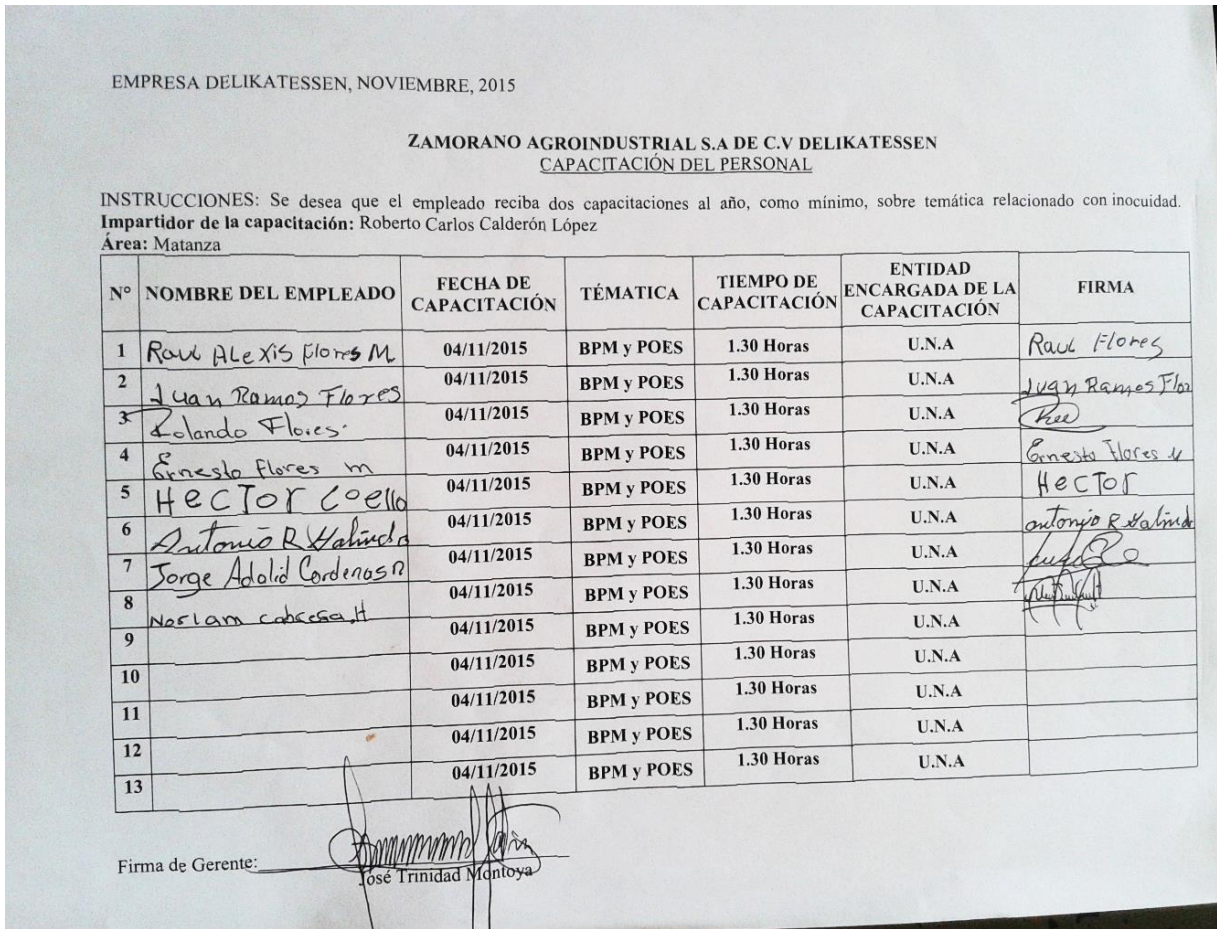 EMPRESA DELIKATESSEN, NOVIEMBRE, 2015
ZAMORANO AGROINDUSTRIAL S.A DE C.V DELIKATESSEN
CAPACITACIÓN DEL PERSONAL
INSTRUCCIONES: Se desea que el empleado reciba dos capacitaciones al año, como mínimo, sobre temática relacionado con inocuidad.
Impartidor de la capacitación: Roberto Carlos Calderón López
Área: Matanza
N° NOMBRE DEL EMPLEADO FECHA DE CAPACITACIÓN TÉMATICA TIEMPO DE CAPACITACIÓN ENTIDAD ENCARGADA DE LA CAPACITACIÓN FIRMA
1 Raul ALexis Flores M 04/11/2015 BPM y POES 1.30 Horas U.N.A Raul Flores
2 Juan Ramos Flores 04/11/2015 BPM y POES 1.30 Horas U.N.A Juan Ramos Flor
3 Rolando Flores. 04/11/2015 BPM y POES 1.30 Horas U.N.A
4 Ernesto flores m 04/11/2015 BPM y POES 1.30 Horas U.N.A Ernesto flores
5 HecTor Coello 04/11/2015 BPM y POES 1.30 Horas U.N.A HecTor
6 Antonio R Galindo 04/11/2015 BPM y POES 1.30 Horas U.N.A antonio R Galindo
7 Jorge Adolid Cardenas 04/11/2015 BPM y POES 1.30 Horas U.N.A
8 04/11/2015 BPM y POES 1.30 Horas U.N.A
9 04/11/2015 BPM y POES 1.30 Horas U.N.A
10 04/11/2015 BPM y POES 1.30 Horas U.N.A
11 04/11/2015 BPM y POES 1.30 Horas U.N.A
12 04/11/2015 BPM y POES 1.30 Horas U.N.A
13 04/11/2015 BPM y POES 1.30 Horas U.N.A
Firma de Gerente:
José Trinidad Montoya